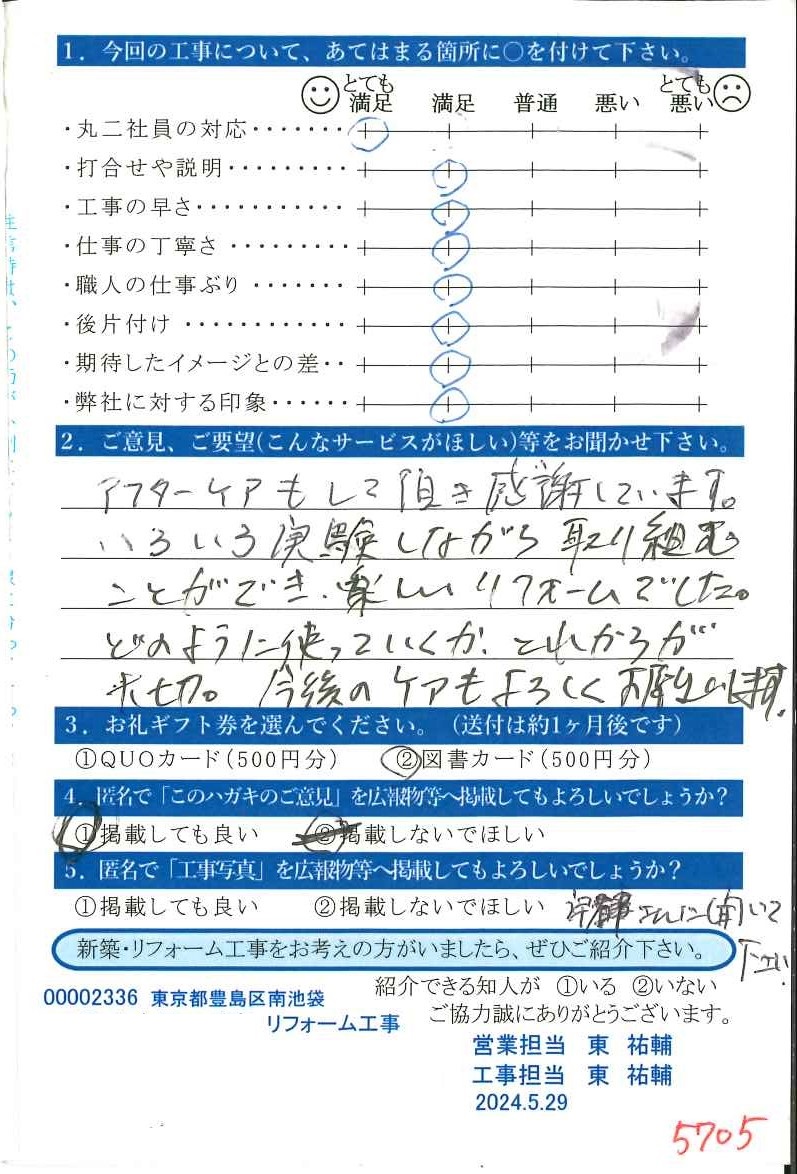 1．今回の工事について、あてはまる箇所に○を付けて下さい。
とても満足 満足 普通 悪い とても悪い
・丸二社員の対応・・・・・・・
・打合せや説明・・・・・・・・・
・工事の早さ・・・・・・・・・・・
・仕事の丁寧さ・・・・・・・・・
・職人の仕事ぶり・・・・・・・
・後片付け・・・・・・・・・・・・
・期待したイメージとの差・・
・弊社に対する印象・・・・・・
2．ご意見、ご要望(こんなサービスがほしい)等をお聞かせ下さい。
アフターケアもして頂き感謝しています。
いろいろ実験しながら取り組む
ことができ、楽しいリフォームでした。
どのように使っていくか、これからが
大切。今後のケアもよろしくお願いします。
3．お礼ギフト券を選んでください。（送付は約1ヶ月後です）
①QUOカード(500円分) ②図書カード(500円分)
4．匿名で「このハガキのご意見」を広報物等へ掲載してもよろしいでしょうか？
①掲載しても良い ②掲載しないでほしい
5．匿名で「工事写真」を広報物等へ掲載してもよろしいでしょうか？
①掲載しても良い ②掲載しないでほしい
さんに聞いて
下さい
新築・リフォーム工事をお考えの方がいましたら、ぜひご紹介下さい。
紹介できる知人が ①いる ②いない
00002336 東京都豊島区南池袋
リフォーム工事
ご協力誠にありがとうございます。
営業担当 東 祐輔
工事担当 東 祐輔
2024.5.29
5705